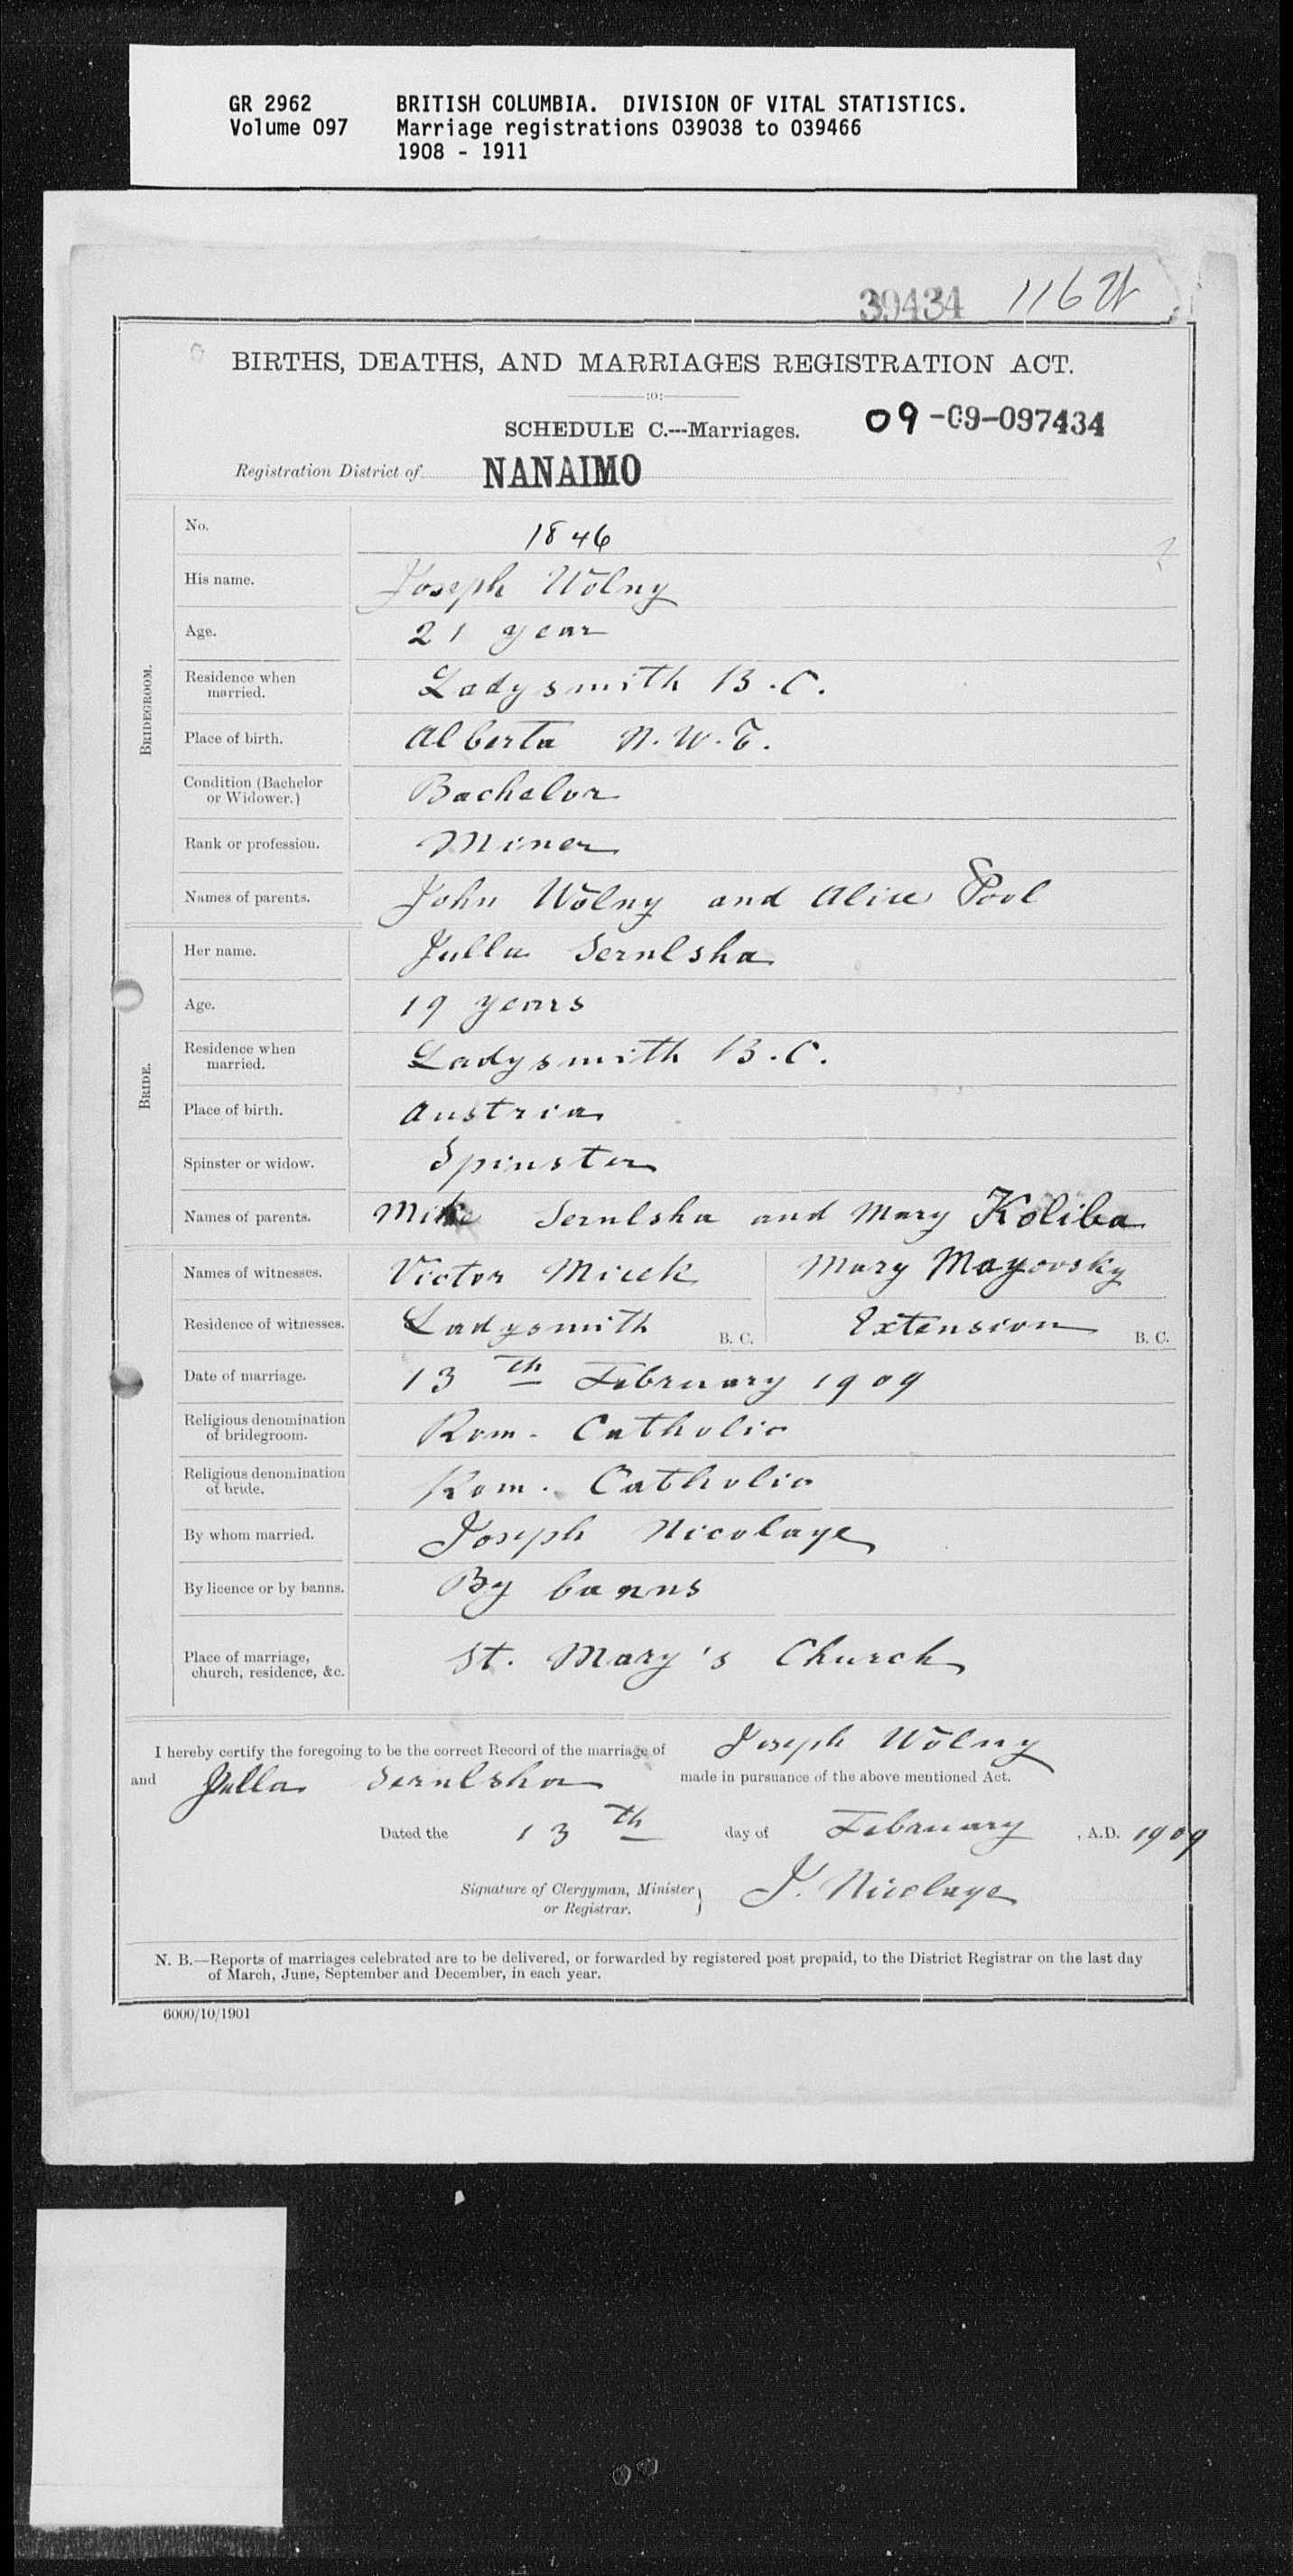 GR 2962 BRITISH COLUMBIA. DIVISION OF VITAL STATISTICS.
Volume 097 Marriage registrations 039038 to 039466
1908 - 1911
39434 116
BIRTHS, DEATHS, AND MARRIAGES REGISTRATION ACT.
:o:
SCHEDULE C.---Marriages. 09-09-097434
Registration District of NANAIMO
BRIDEGROOM.
No. 1846
His name. Joseph Wolny
Age. 21 year
Residence when married. Ladysmith B.C.
Place of birth. Alberta N.W.T.
Condition (Bachelor or Widower.) Bachelor
Rank or profession. Miner
Names of parents. John Wolny and Alice Pool
BRIDE.
Her name. Julla Sernlsha
Age. 19 years
Residence when married. Ladysmith B.C.
Place of birth. Austria
Spinster or widow. Spinster
Names of parents. Mike Sernlsha and Mary Koliba
Names of witnesses. Victor Micek Mary Mayovsky
Residence of witnesses. Ladysmith B. C. Extension B. C.
Date of marriage. 13th February 1909
Religious denomination of bridegroom. Rom. Catholic
Religious denomination of bride. Rom. Catholic
By whom married. Joseph Nicolaye
By licence or by banns. By banns
Place of marriage, church, residence, &c. St. Mary's Church
I hereby certify the foregoing to be the correct Record of the marriage of Joseph Wolny
and Julla Sernlsha made in pursuance of the above mentioned Act.
Dated the 13th day of February, A.D. 1909
Signature of Clergyman, Minister or Registrar. J. Nicolaye
N. B.—Reports of marriages celebrated are to be delivered, or forwarded by registered post prepaid, to the District Registrar on the last day
of March, June, September and December, in each year.
6000/10/1901